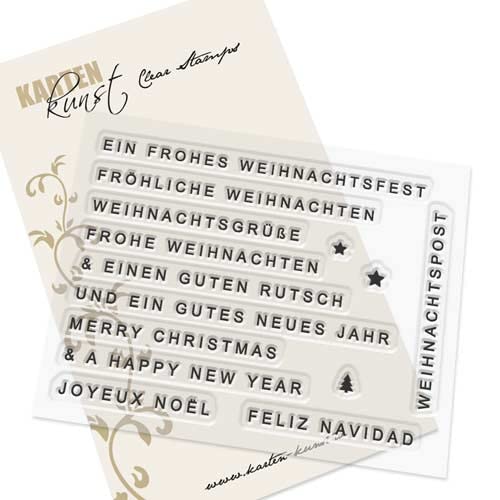 KARTEN
kunst Clear Stamps
EIN FROHES WEIHNACHTSFEST
FRÖHLICHE WEIHNACHTEN
WEIHNACHTSGRÜßE
FROHE WEIHNACHTEN
& EINEN GUTEN RUTSCH
UND EIN GUTES NEUES JAHR
MERRY CHRISTMAS
& A HAPPY NEW YEAR
JOYEUX NOËL
FELIZ NAVIDAD
WEIHNACHTSPOST